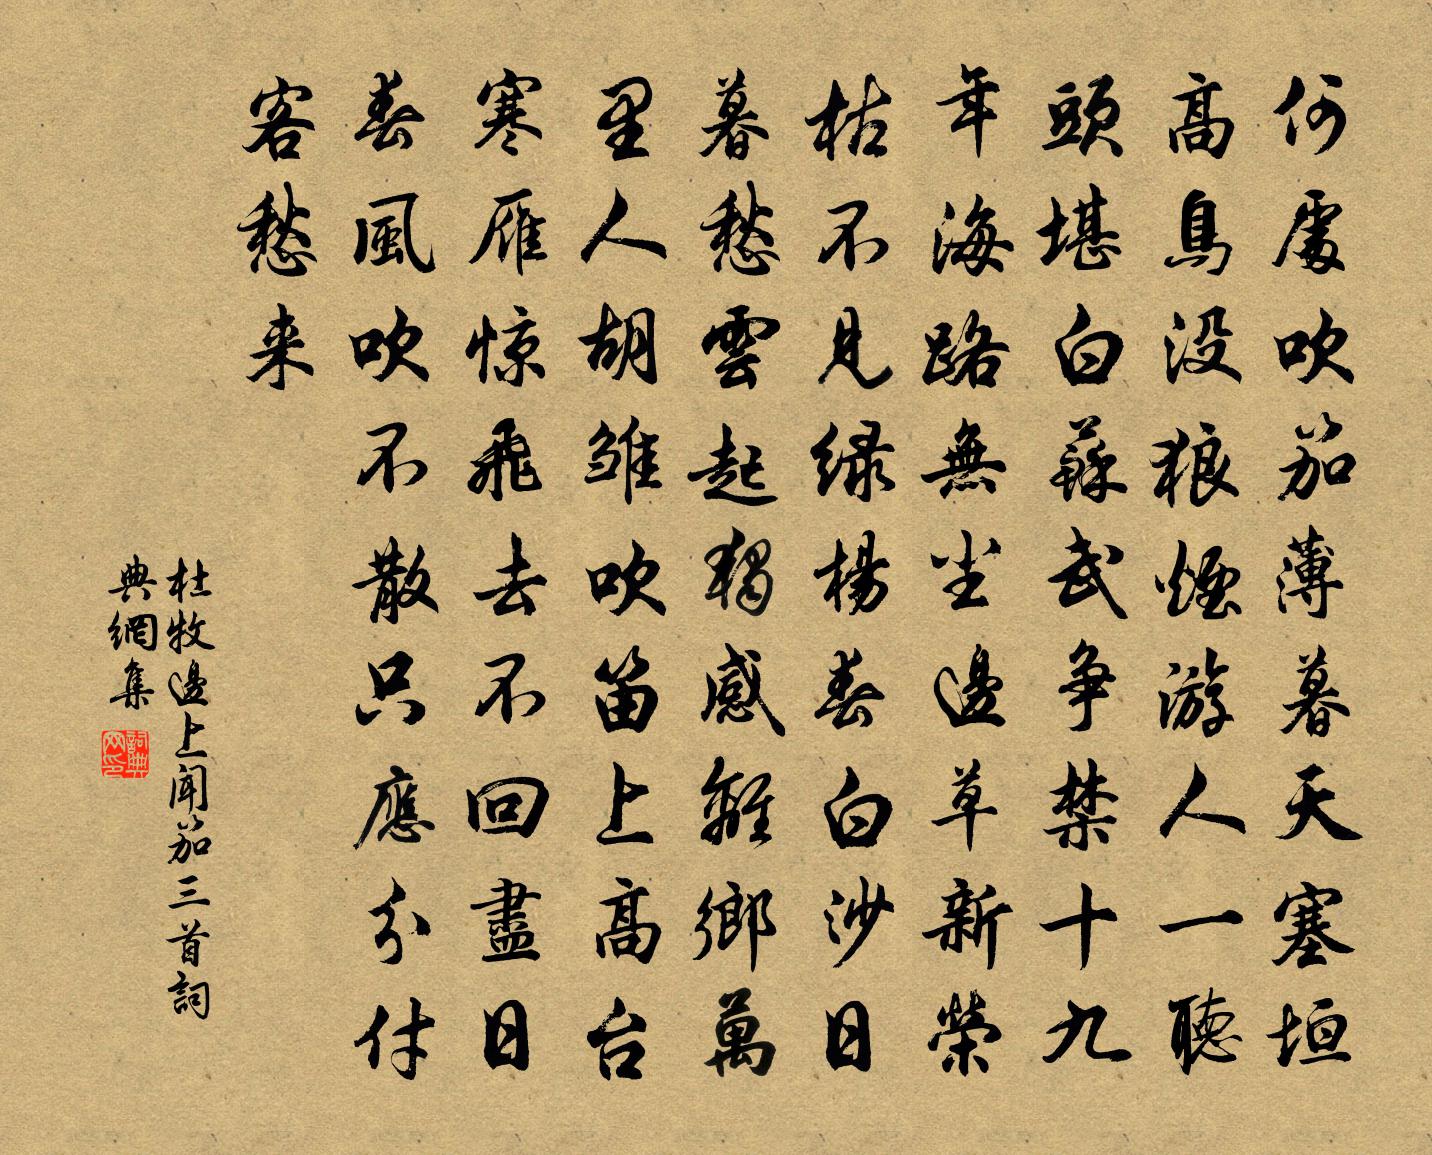 何處吹笳薄暮天塞垣
高鳥没狼煙游人一聽
頭堪白蘇武争禁十九
年海路無塵邊草新榮
枯不見緑楊春白沙日
暮愁雲起獨感離鄉萬
里人胡雛吹笛上高台
寒雁惊飛去不回盡日
春風吹不散只應分付
客愁来
杜牧邊上聞笳三首詞
典網集
詞典
网印